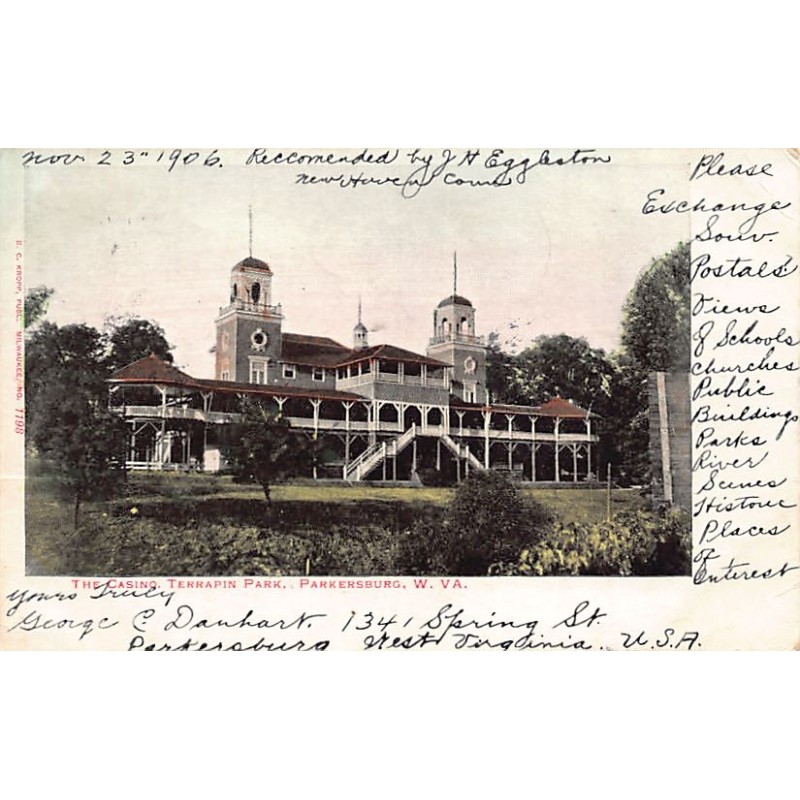 Nov 23" 1906. Reccomended by J H Eggleston
New Haven Conn
Please
Exchange
Souv.
Postals?
Views
of Schools
Churches
Public
Buildings
Parks
River
Scenes
Historic
Places
of
Enterest
E. C. KROPP, PUBL. MILWAUKEE. NO. 1198
THE CASINO. TERRAPIN PARK, PARKERSBURG, W. VA.
Yours Truly
George C Danhart. 1341 Spring St.
Parkersburg West Virginia. U.S.A.